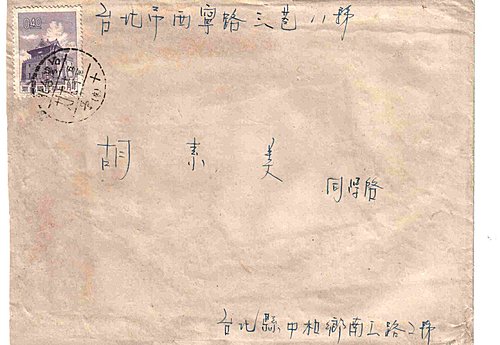 0.40
台北市西寧路三巷八號
胡素美
同學啓
台北縣中和鄉南工路2號